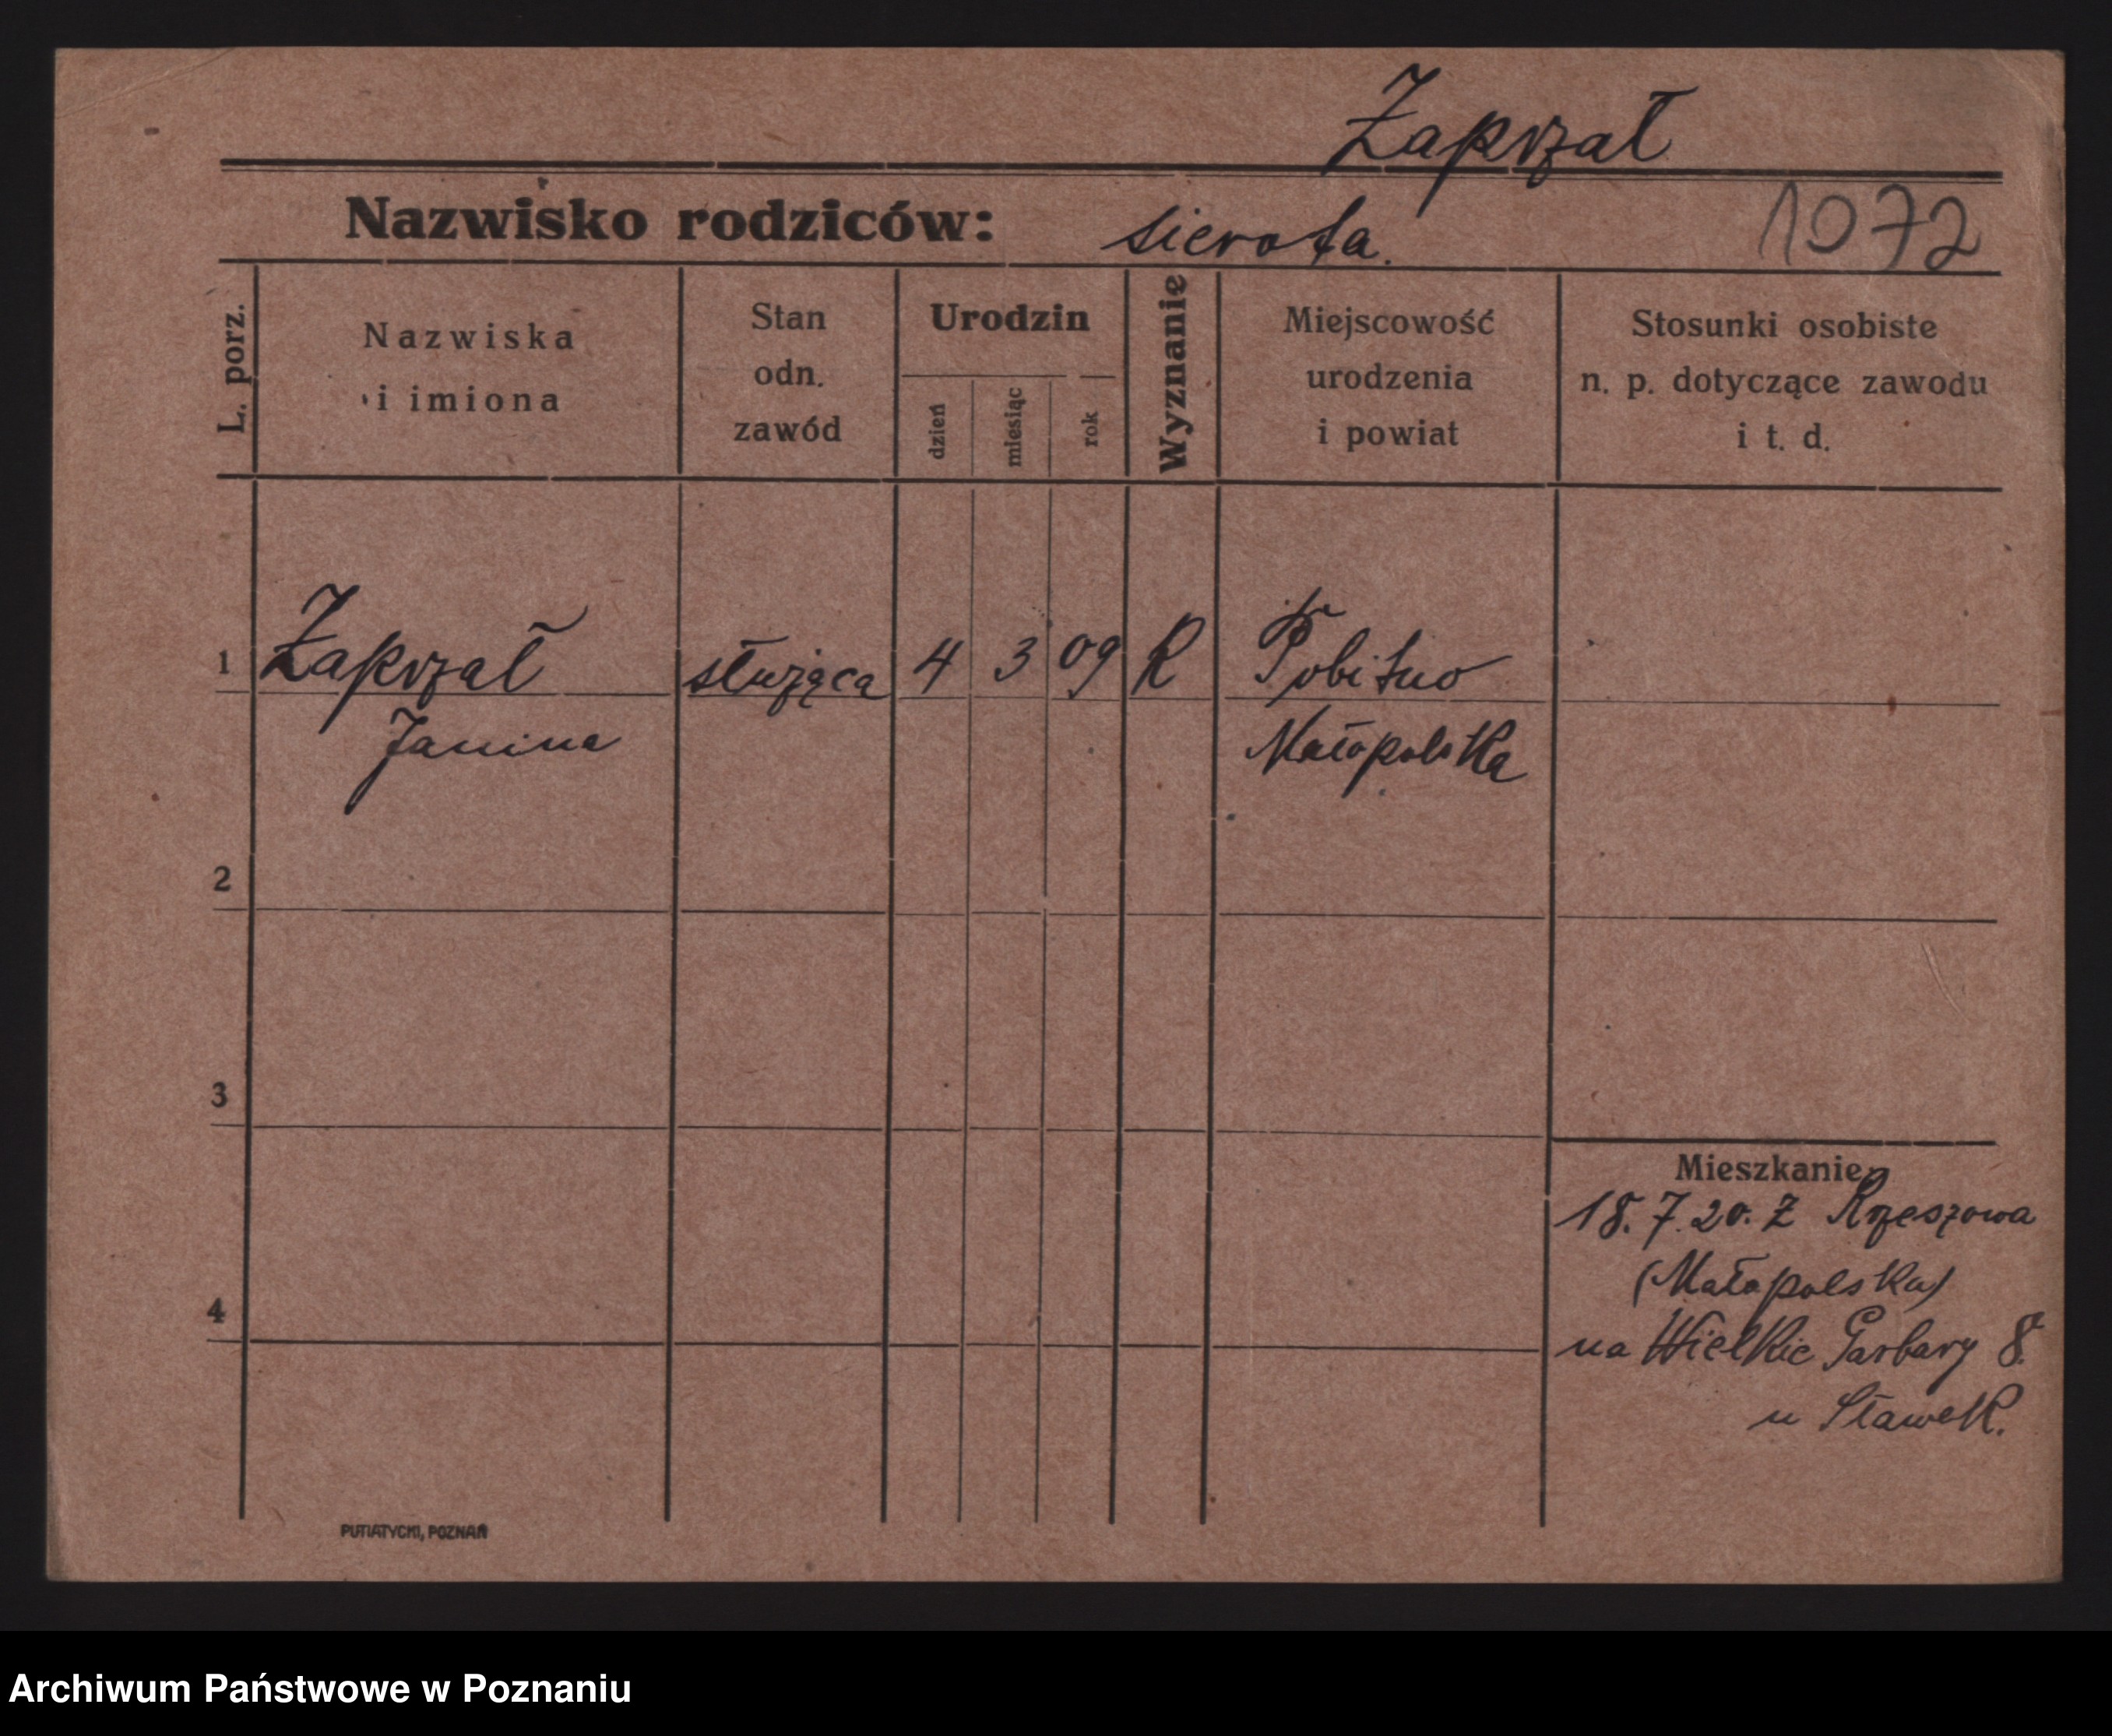 Zaprzał
Nazwisko rodziców: sierota.
1072
L. porz.
Nazwiska
i imiona
Stan
odn.
zawód
Urodzin
dzień
miesiąc
rok
Wyznanie
Miejscowość
urodzenia
i powiat
Stosunki osobiste
n. p. dotyczące zawodu
i t. d.
1 Zaprzał służąca 4 3 09 R Pobitno
Janina Małopolska
2
3
Mieszkanie
18. 7. 20. Z Rzeszowa
(Małopolska)
4
na Wielkie Garbary 8.
u Sławek.
PUTIATYCKI, POZNAŃ
Archiwum Państwowe w Poznaniu